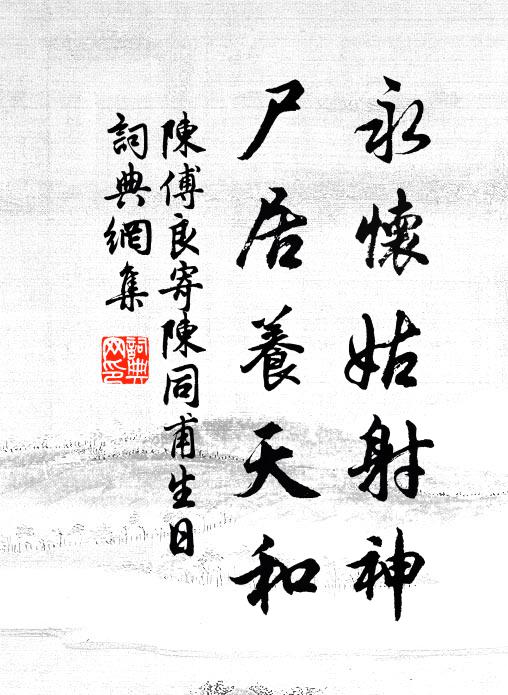 永懷姑射神
尸居養天和
陳傅良寄陳同甫生日
詞典網集
詞典
网印